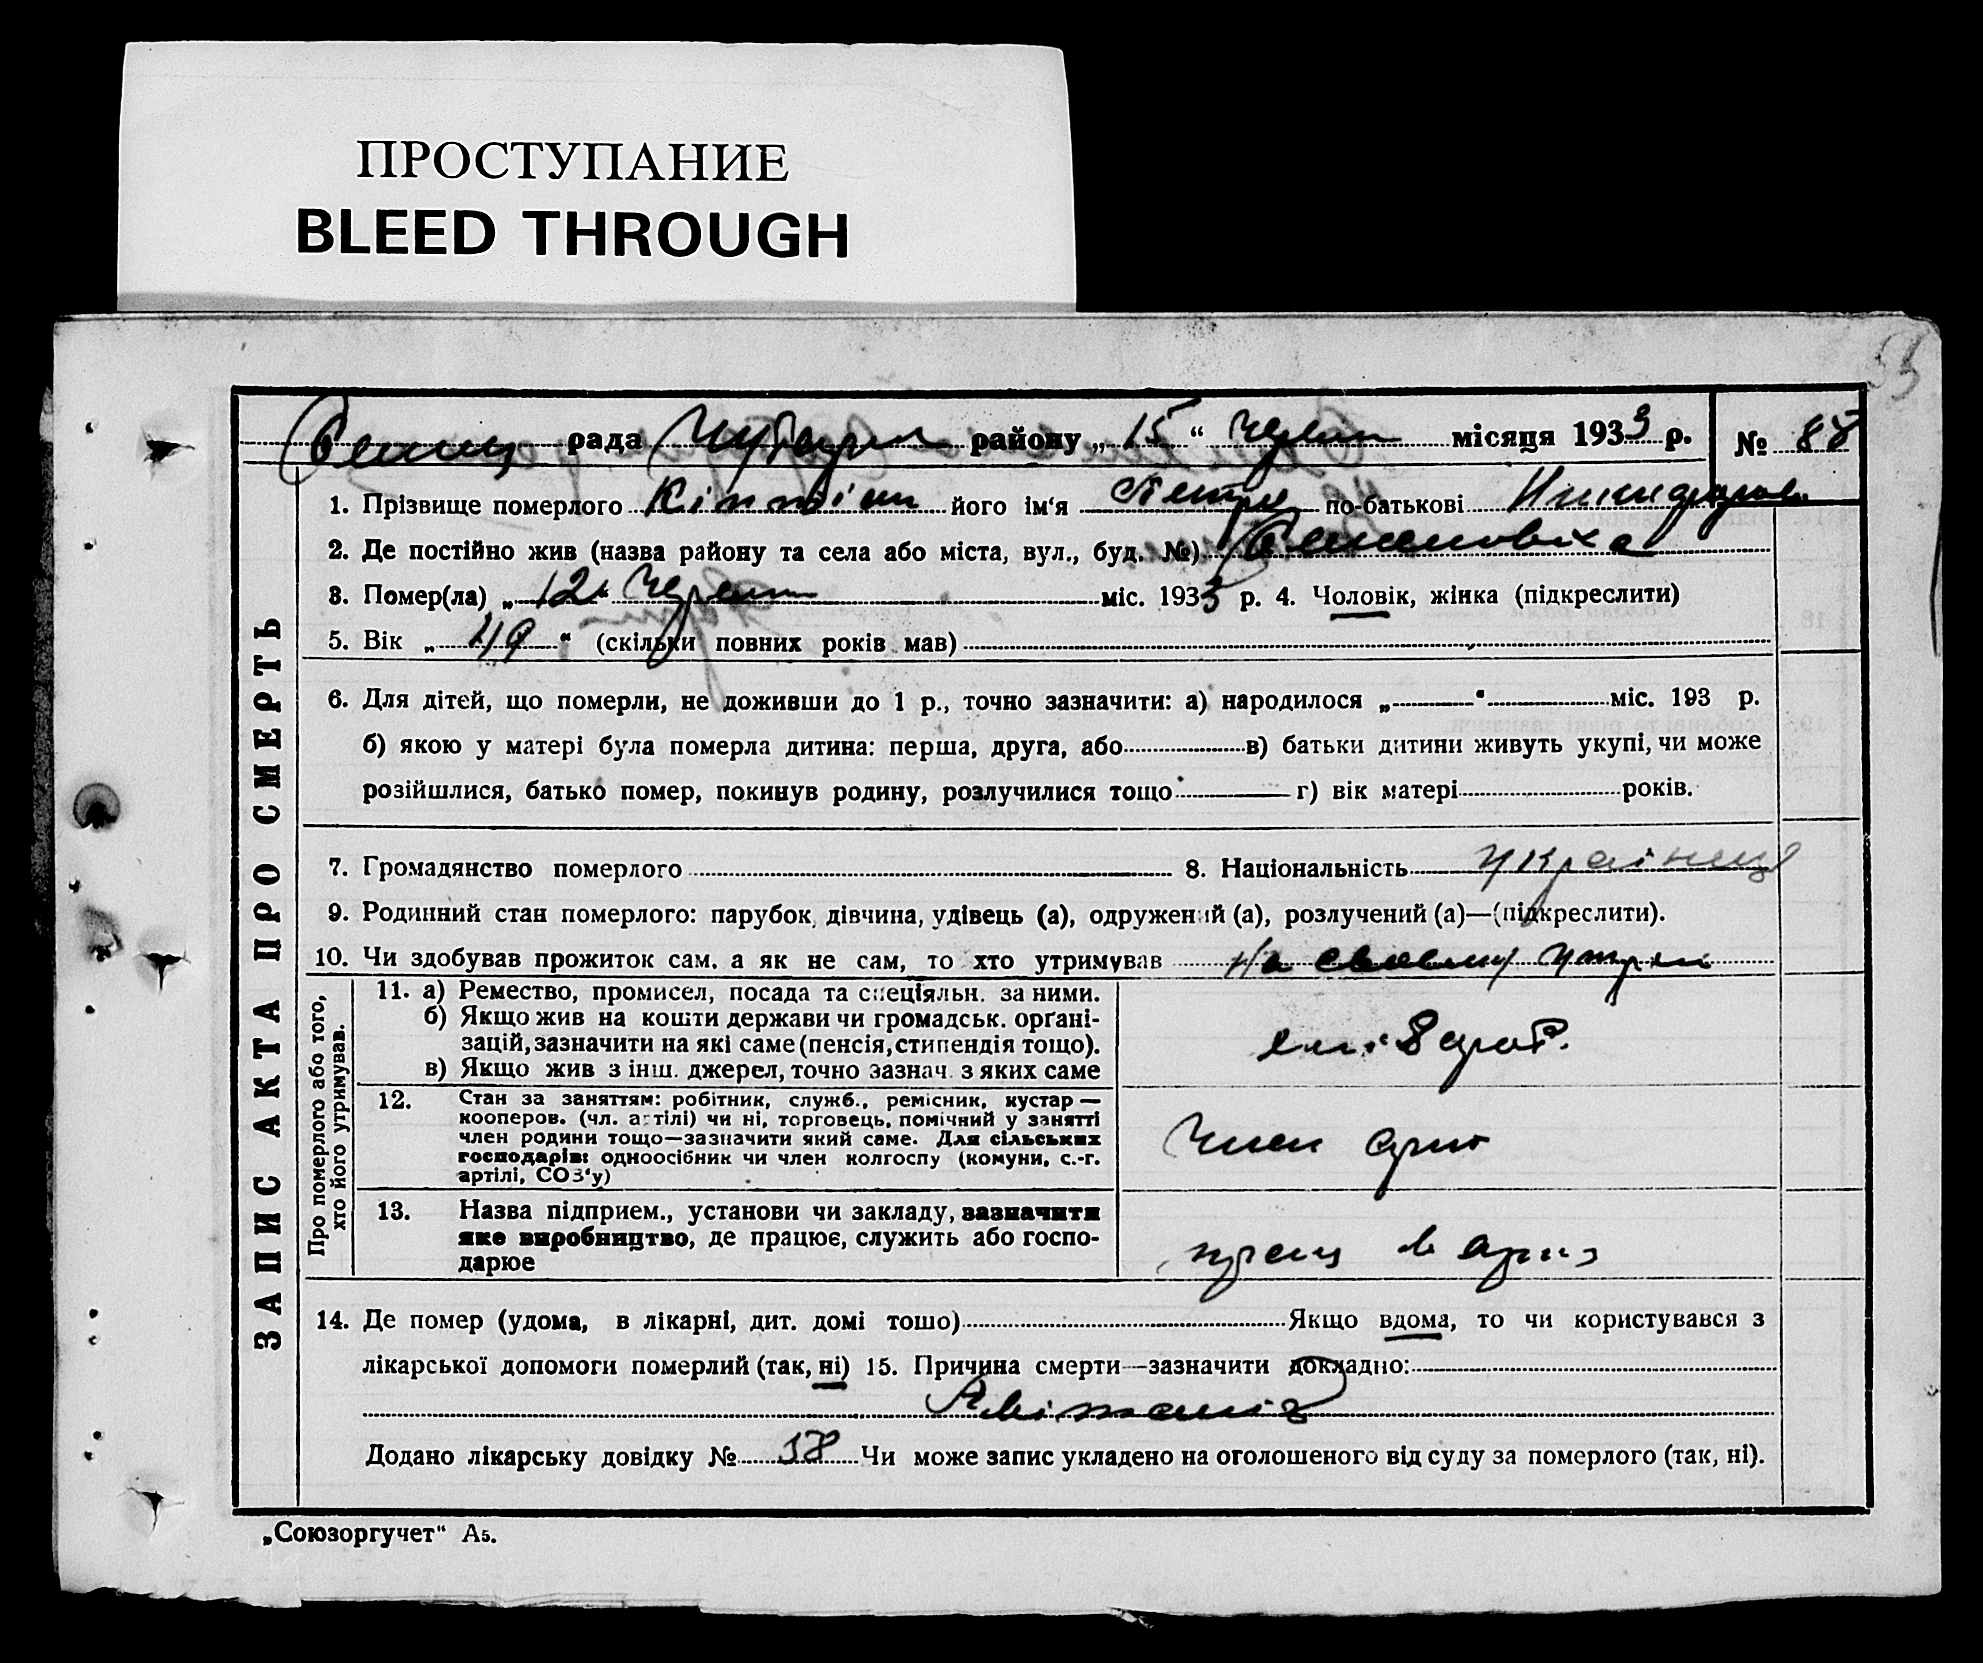 ПРОСТУПАНИЕ
BLEED THROUGH
рада района „ 15 “ місяця 1933 р. № 88
1. Прізвище померлого його ім‘я Петро по-батькові
2. Де постійно жив (назва району та села або міста, вул., буд. №)
3. Помер(ла) „ 12 “ міс. 1933 р. 4. Чоловік, жінка (підкреслити)
5. Вік „ 49 “ (скільки повних років мав)
6. Для дітей, що померли, не доживши до 1 р., точно зазначити: а) народилося „ “ міс. 193 р.
б) якою у матері була померла дитина: перша, друга, або в) батьки дитини живуть укупі, чи може
розійшлися, батько помер, покинув родину, розлучилися тощо г) вік матері років.
7. Громадянство померлого 8. Національність українець
9. Родинний стан померлого: парубок, дівчина, удівець (а), одружений (а), розлучений (а)—(підкреслити).
10. Чи здобував прожиток сам, а як не сам, то хто утримував на своему утрим
Про померлого або того,
хто його утримував.
11. а) Ремество, промисел, посада та спеціяльн. за ними.
б) Якщо жив на кошти держави чи громадськ. орґані-
зацій, зазначити на які саме (пенсія, стипендія тощо).
в) Якщо жив з інш. джерел, точно зазнач. з яких саме
12. Стан за заняттям: робітник, служб., ремісник, кустар —
кооперов. (чл. артілі) чи ні, торговець, помічний у занятті
член родини тощо—зазначити який саме. Для сільських
господарів: одноосібник чи член колгоспу (комуни, с.-г.
артілі, СОЗ‘у)
Член
13. Назва підприєм., установи чи закладу, зазначити
яке виробництво, де працює, служить або госпо-
дарює
14. Де помер (удома, в лікарні, дит. домі тощо) Якщо вдома, то чи користувався з
лікарської допомоги померлий (так, ні) 15. Причина смерти—зазначити докладно:
Додано лікарську довідку № 38 Чи може запис укладено на оголошеного від суду за померлого (так, ні).
ЗАПИС АКТА ПРО СМЕРТЬ
„Союзоргучет“ А5.